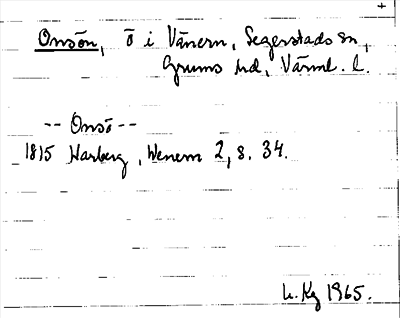 +
Onsön, ö i Vänern, Segerstads sn,
Grums hd, Värml. l.
-- Onsö --
1815 Harberg, Wenern 2, s. 34.
1965.